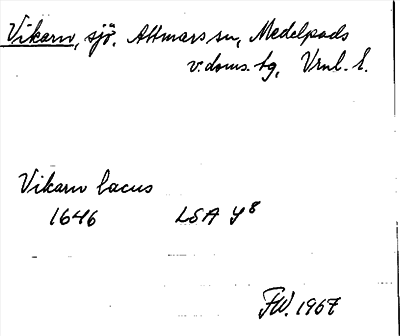 Vikarn, sjö, Attmars sn, Medelpads
v. doms. tg, Vrnl. l.
Vikarn lacus
1646 LSA Y8
FW. 1967